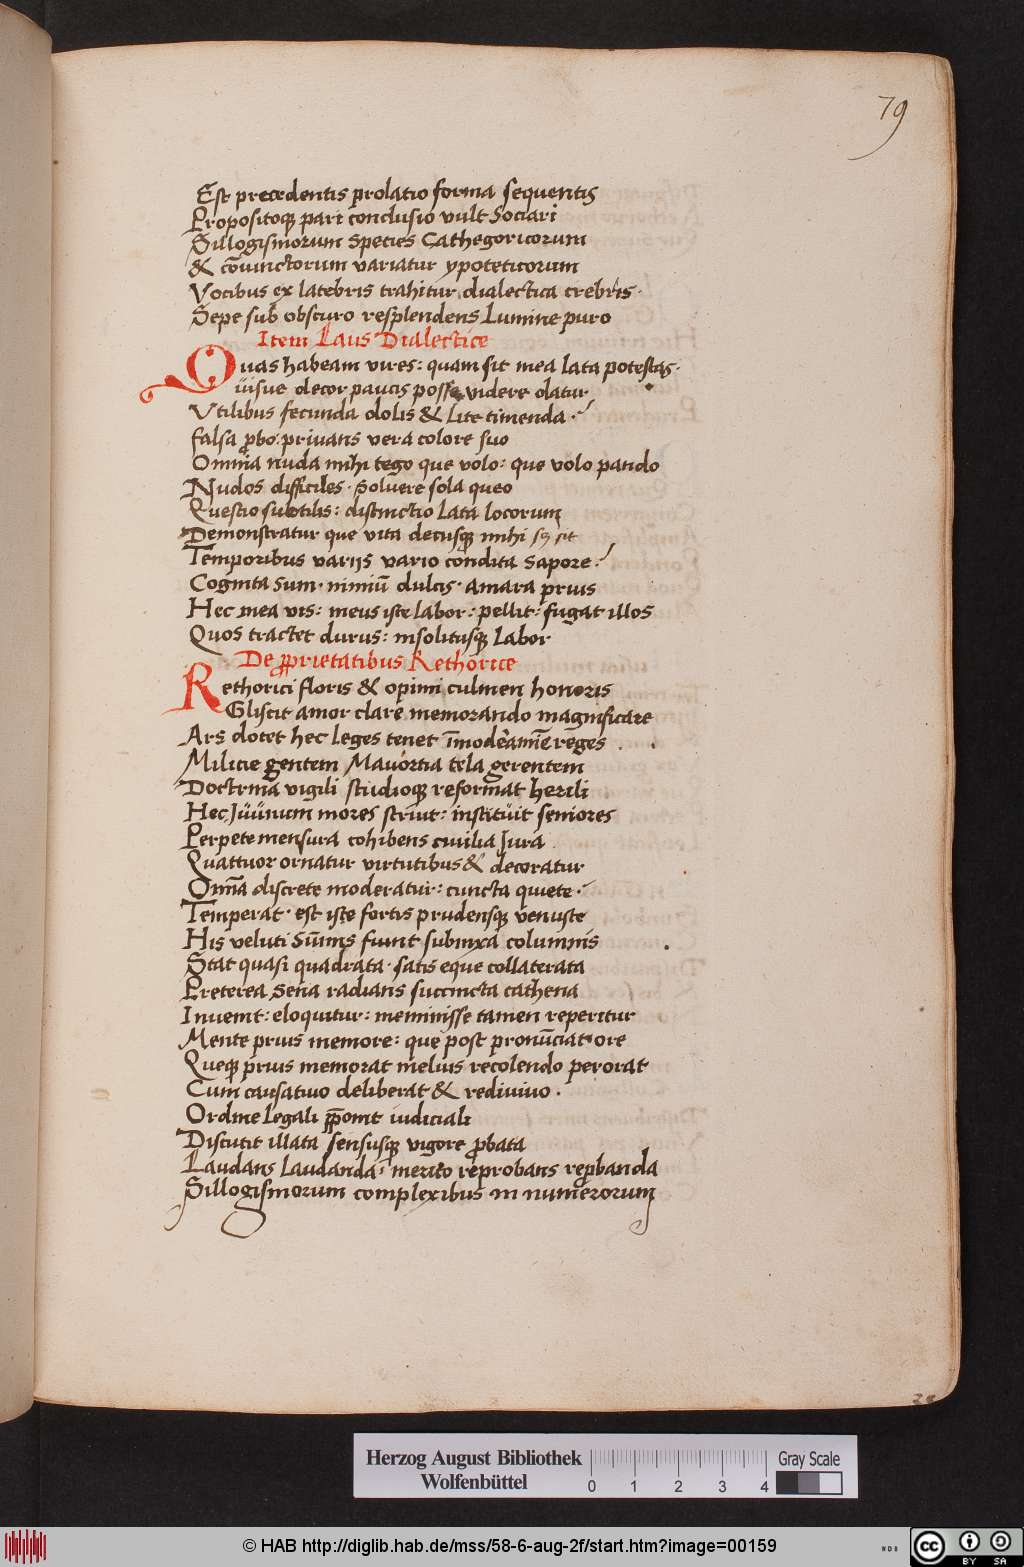 79
Est precedentis prolatio forma sequentis
Propositoqʒ pari conclusio vult Sociari
Sillogismorum Species Cathegoricorum
& cōiunctorum variatur ypoteticorum
Vocibus ex latebris trahitur dialectica crebris·
Sepe sub obscuro resplendens Lumine puro
Item Laus Dialectice
Quas habeam vires: quam sit mea lata potestas·
Uisue decor paucis posse videre datur
Vtilibus fecunda dolis & Lite timenda·
falsa ꝓbo: priuatis vera colore suo
Omnia nuda mihi tego que volo: que volo pando
Nudos difficiles· Soluere sola queo
Questio subtilis: distinctio Lata locorum
Demonstratur que vita decusqʒ mihi sit
Temporibus variis vario condita Sapore·
Cognita Sum· nimiū dulcis· amara prius
Hec mea vis: meus iste labor: pellit: fugat illos
Quos tractet durus: insolitusqʒ Labor
De ꝓprietatibus Rethorice
Rethorici floris & opimi culmen honoris
Gliscit amor clare memorando magnificare
Ars dotet hec leges tenet ī moderamīe reges
Milicie gentem Mauortia tela gerentem
Doctrina vigili studioqʒ reformat herili
Hec Juuenum mores struit: instituit seniores
Perpete mensura cohibens ciuilia Jura
Quattuor ornatur virtutibus & decoratur
Omīa discrete moderatur: cuncta quiete·
Temperat· est iste fortis prudensqʒ venuste
His veluti Sūmis fiunt subnixa columnis
Stat quasi quadrata· satis eque collaterata
Preterea Sena radians succincta cathena
Inuenit: eloquitur: meminisse tamen reperitur
Mente prius memore: que post pronūciat ore
Queqʒ prius memorat melius recolendo perorat
Cum causatiuo deliberat & rediuiuo·
Ordine Legali ꝓponit iudiciali
Discutit illata sensusqʒ vigore ꝓbata
Laudans Laudanda: merito reprobans reꝓbanda
Sillogismorum complexibus in numerorum
Herzog August Bibliothek
Wolfenbüttel
0 1 2 3 4
Gray Scale
© HAB http://diglib.hab.de/mss/58-6-aug-2f/start.htm?image=00159
cc BY SA